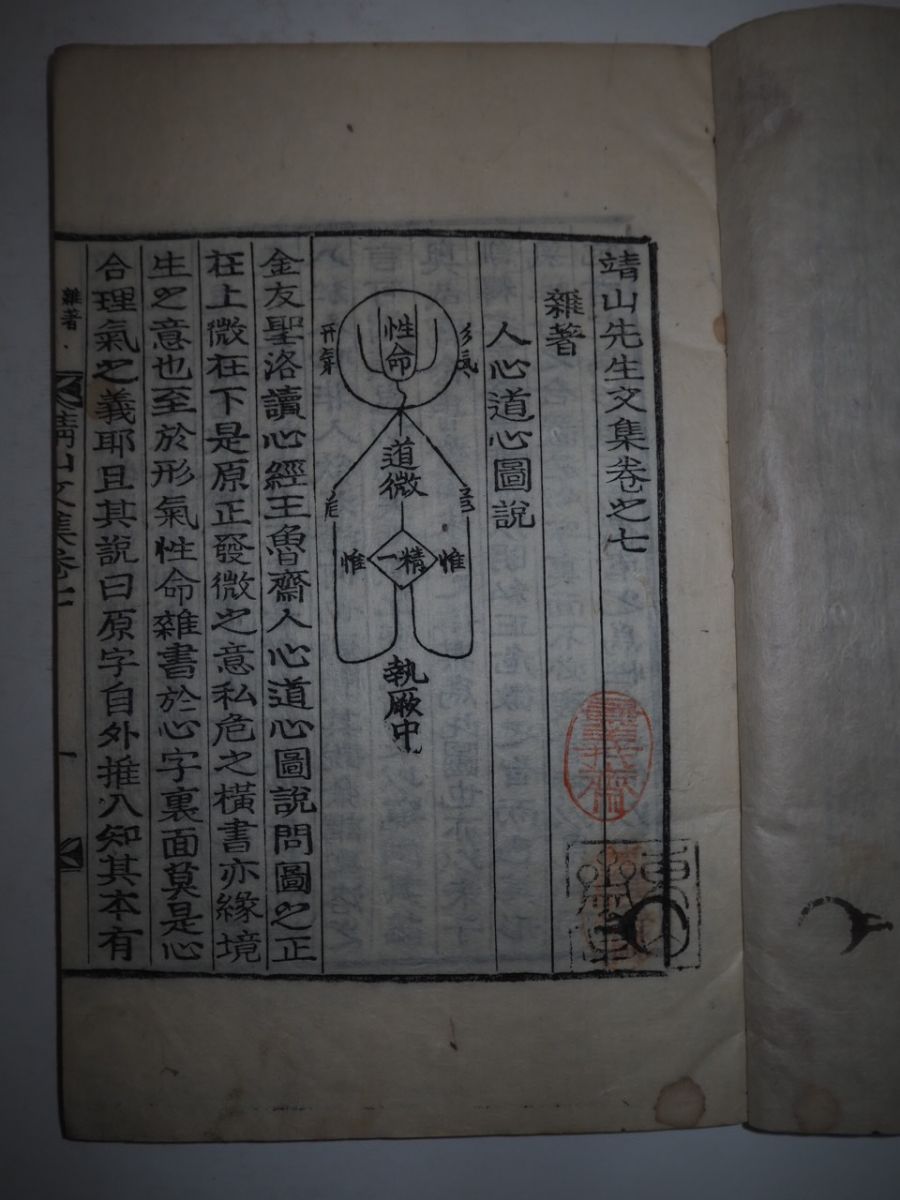 靖山先生文集卷之七
雜著
人心道心圖說
性命
形氣
道微
惟
精一
惟
執厥中
金友聖洛讀心經王魯齋人心道心圖說問圖之正
在上微在下是原正發微之意私危之橫書亦緣境
生之意也至於形氣性命雜書於心字裏面莫是心
合理氣之義耶且其說曰原字自外推入知其本有
雜著
靖山文集卷七
一